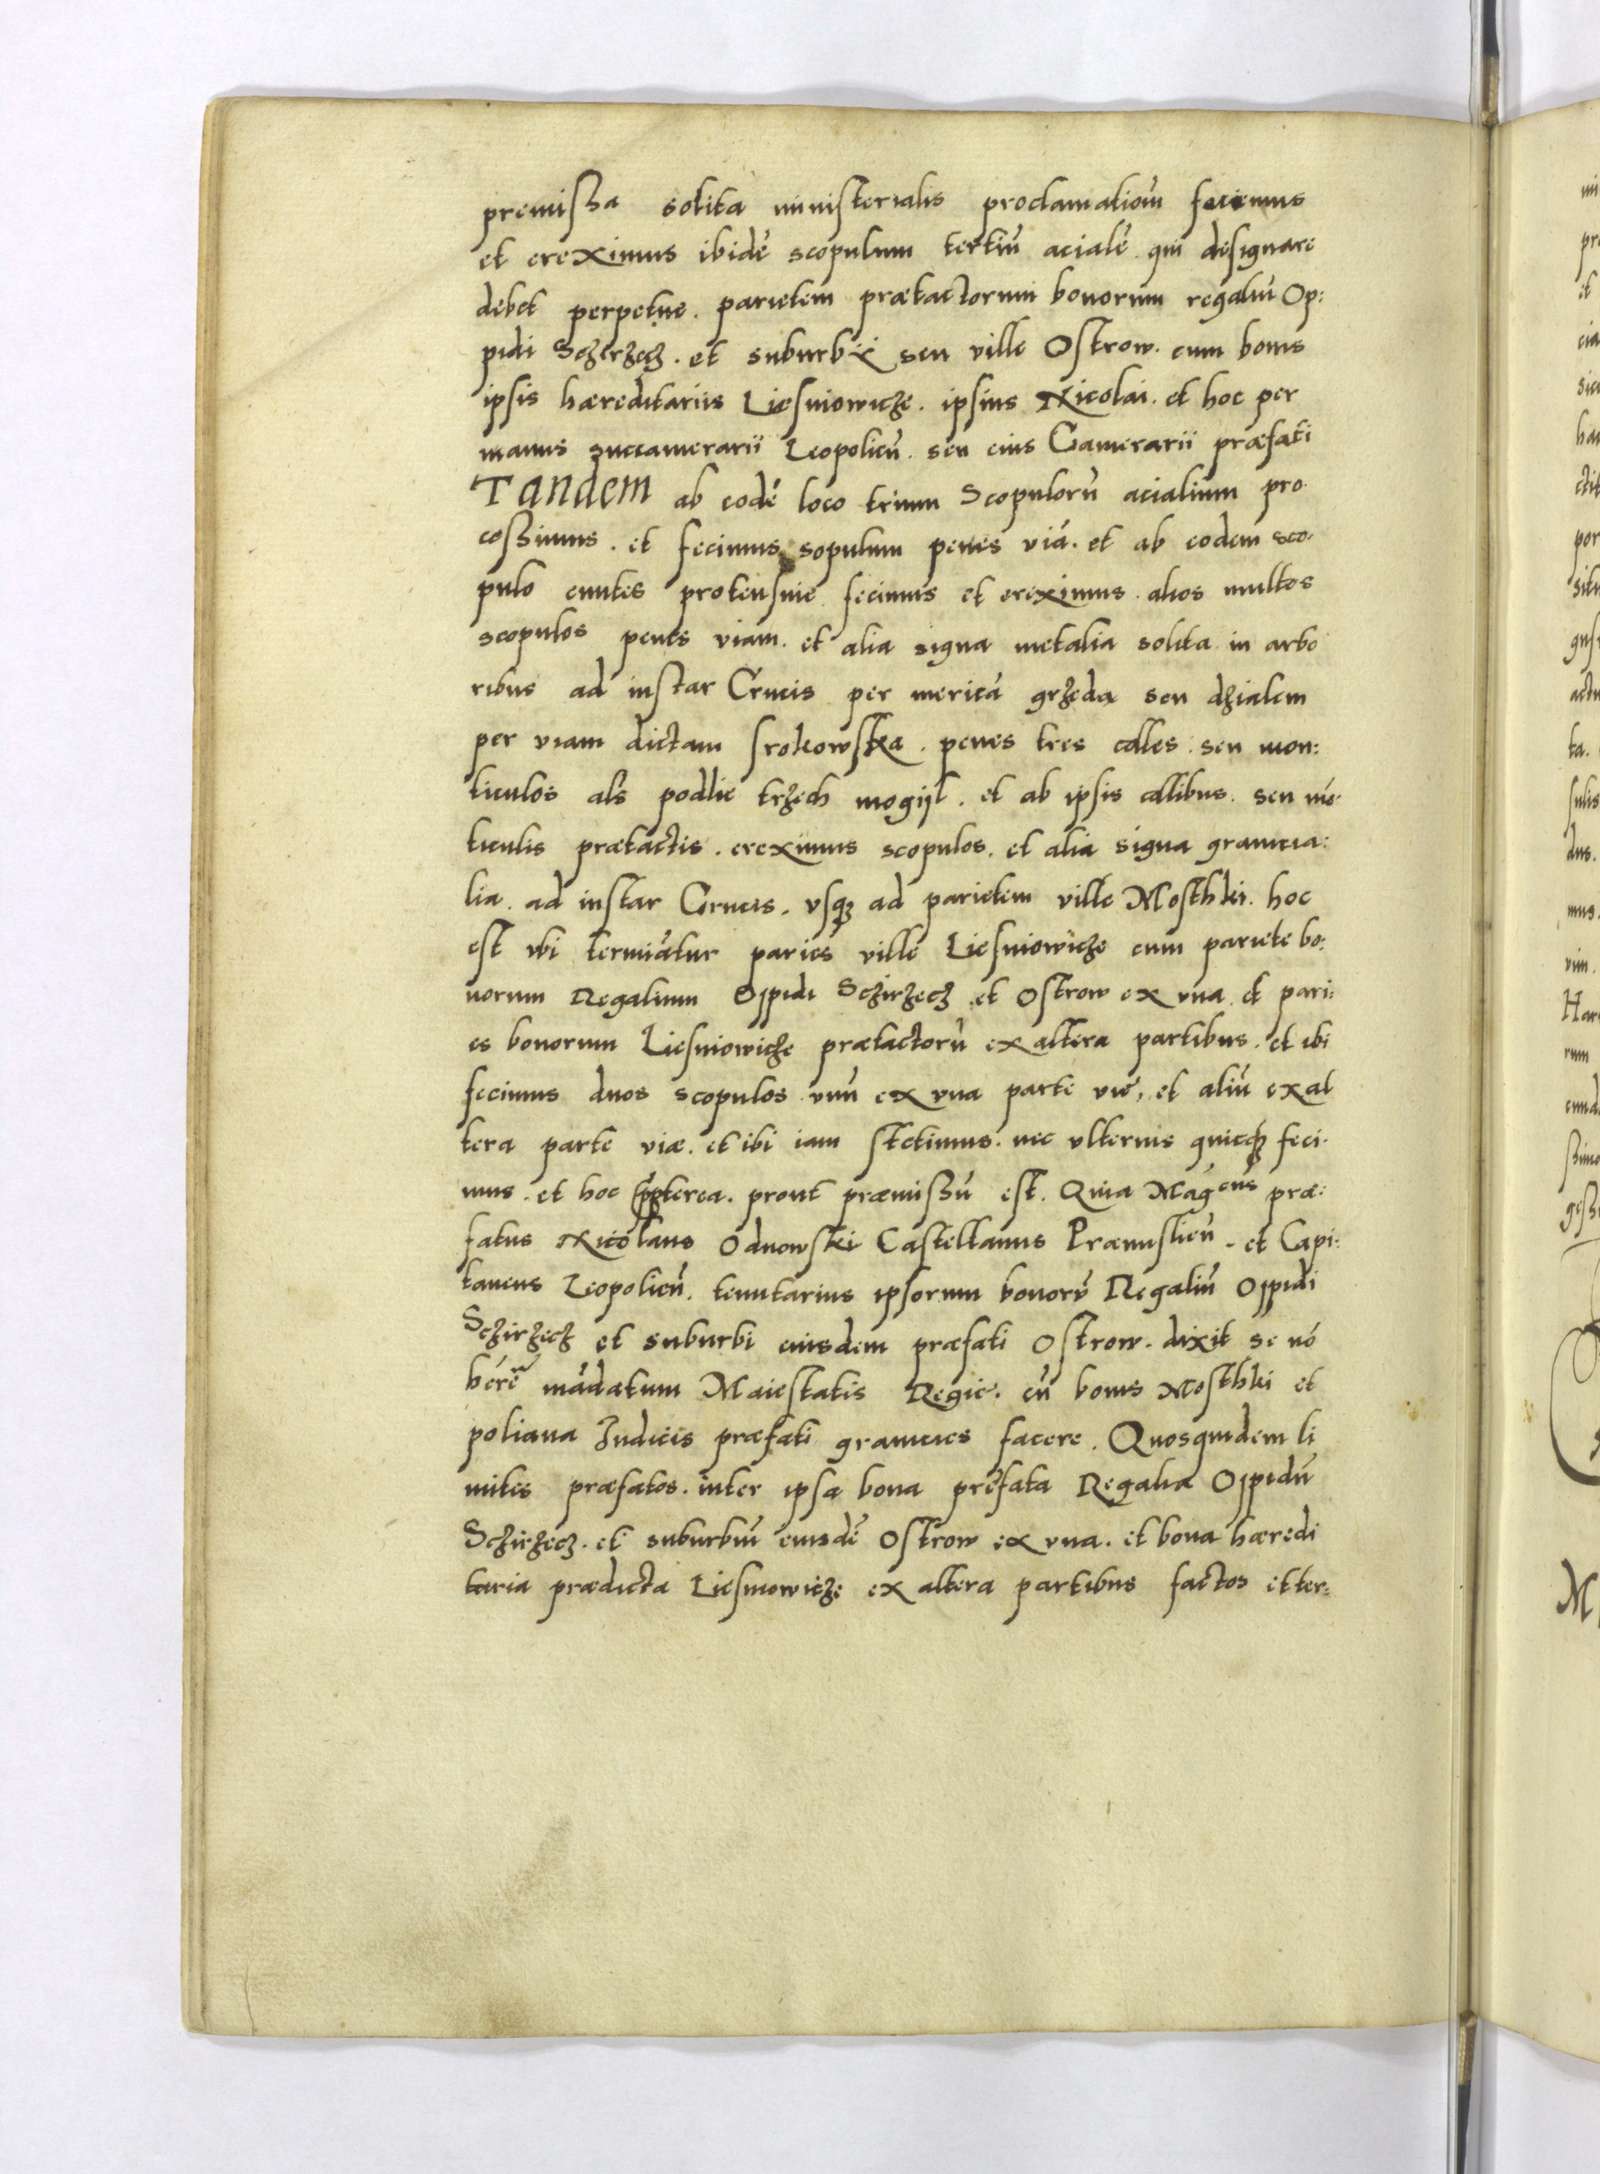 premissa solita ministerialis proclamatioñ fecimus
et ereximus ibidẽ scopulum tertiũ acialẽ qui designare
debet perpetue. parietem prætactorum bonorum regaliũ Op:
pidi Sczirzecz. et suburbii seu ville Ostrow. cum bonis
ipsis hæreditariis Liesniowicze. ipsius Nicolai. et hoc per
manus succamerarii Leopolieñ. seu eius Camerarii præfati
Tandem ab eodẽ loco trium Scopulorũ acialium pro
cessimus. et fecimus sopulum penes viã. et ab eodem sco-
pulo euntes protensive fecimus et ereximus. alios multos
scopulos penes viam. et alia signa metalia solita in arbo
ribus ad instar Crucis per mericã grzeda seu dzialem
per viam dictam Srokowska. penes tres colles. seu mon:
ticulos als podlie trzech mogijl. et ab ipsis collibus. seu mõ-
ticulis prætactis. ereximus scopulos. et alia signa grameia:
lia. ad instar Crucis. vsqz ad parietem ville Mosthki. hoc
est vbi termiãtur paries ville Liesniowicze cum pariete bo:
norum Regalium Oppidi Sczirzecz. et Ostrow ex vna et pari:
es bonorum Liesniowicze prætactorũ ex altera partibus. et ibi
fecimus duos scopulos vnũ ex vna parte vie, et aliũ ex al
tera parte viæ. et ibi iam stetimus. nec vlterius quicqz feci-
mus. et hoc ppterea. prout præmissũ est. Quia Magcus præ:
fatus Nicolaus Odnowski Castellanus Præmislieñ. et Capi:
taneus Leopolieñ. tenutarius ipsorum bonorũ Regaliũ Oppidi
Sczirzecz et suburbi eiusdem præfati Ostrow. dixit se nõ
hẽre mãdatum Maiestatis Regie. cũ bonis Mosthki et
poliana Iudicis præfati gramcies facere. Quosquidem li
mites præfatos. inter ipsa bona prefata Regalia Oppidũ
Sczirzecz. et suburbiũ eiusdẽ Ostrow ex vna. et bona hæredi
taria prædicta Liesniowicze ex altera partibus factos et ter: